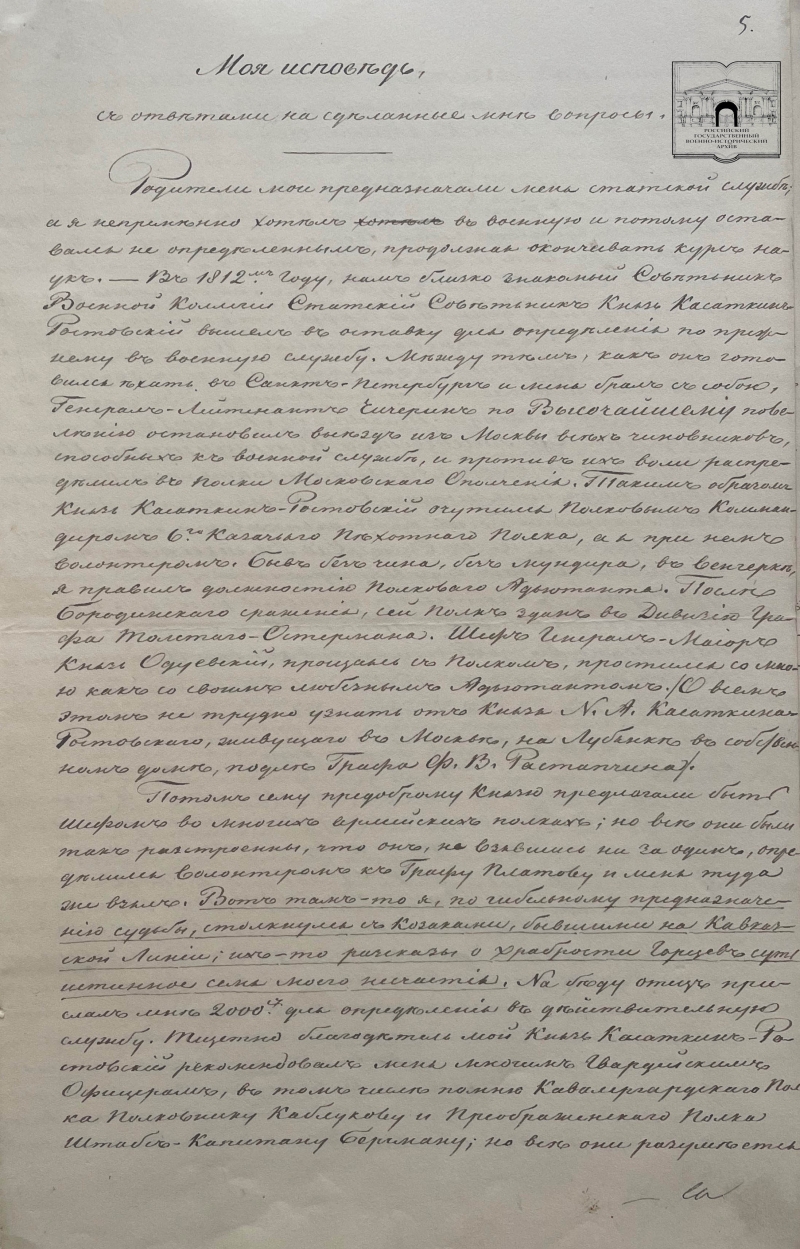 5.
Моя исповѣдь,
РОССИЙСКИЙ
ГОСУДАРСТВЕННЫЙ
ВОЕННО-ИСТОРИЧЕСКИЙ
АРХИВ
съ отвѣтами на сдѣланные мнѣ вопросы.
Родители мои предназначали меня статской службѣ;
а я непремѣнно хотѣлъ хотѣлъ въ военную и потому оста-
вался не опредѣленнымъ, продолжая окончивать курсъ на-
укъ. — Въ 1812мъ Году, намъ близко знакомый Совѣтникъ
Военной Коллегіи Статскій Совѣтникъ Князь Касаткинъ
Ростовскій вышелъ въ отставку для опредѣленія по преж-
нему въ военную службу. Между тѣмъ, какъ онъ гото-
вился ѣхать въ Санктъ-Петербургъ и меня бралъ съ собою,
Генералъ-Лейтенантъ Чичеринъ по Высочайшему пове-
лѣнію остановилъ выѣздъ изъ Москвы всѣхъ чиновниковъ,
способныхъ къ военной службѣ, и противъ ихъ воли распре-
дѣлилъ въ Полки Московскаго Ополченія. Такимъ образомъ
Князь Касаткинъ-Ростовскій очутился Полковымъ Коман-
диромъ 6го Казачьяго Пѣхотнаго Полка, а я при немъ
волонтеромъ. Бывъ безъ чина, безъ мундира, въ венгеркѣ,
я правилъ должностію Полковаго Адъютанта. Послѣ
Бородинскаго сраженія, сей Полкъ сданъ въ Дивизію Гра-
фа Толстаго-Остермана. Шефъ Генералъ-Маіоръ
Князь Одуевскій, прощаясь съ Полкомъ, простился со мно-
ю какъ со своимъ любезнымъ Адъютантомъ. /О всемъ
этомъ не трудно узнать отъ Князя N. А. Касаткина-
Ростовскаго, живущаго въ Москвѣ, на Лубянкѣ въ собствен-
номъ домѣ, подлѣ Графа Ф. В. Растапчина/.
Потомъ сему предоброму Князю предлагали быть
Шефомъ во многихъ армійскихъ полкахъ; но всѣ они были
такъ разстроенны, что онъ, не взявшись ни за одинъ, опре
дѣлился волонтеромъ къ Графу Платову и меня туда
же взялъ. Вотъ тамъ-то я, по гибельному предназначе-
нію судьбы, столкнулся съ Козаками, бывшими на Кавказ-
ской Линіи; ихъ-то разсказы о храбрости Горцевъ суть
истинное семя моего несчастія. На бѣду отецъ при-
слалъ мнѣ 2000 для опредѣленія въ дѣйствительную
службу. Тщетно благодѣтель мой Князь Касаткинъ-Ро-
стовскій рекомендовалъ меня многимъ Гвардейскимъ
Офицерамъ, въ томъ числѣ помню Кавалергардскаго Пол
ка Полковнику Каблукову и Преображенскаго Полка
Штабсъ-Капитану Бергману; но всѣ они разумѣется